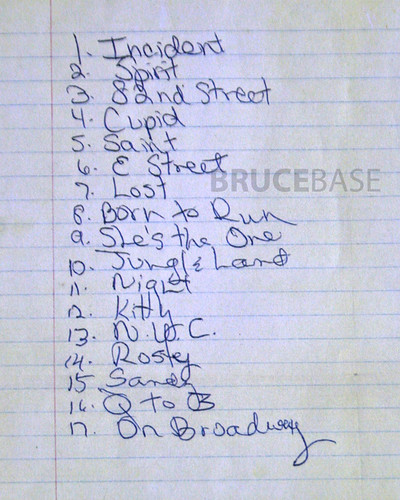 1. Incident
2. Spirit
3. 82nd Street
4. Cupid
5. Saint
6. E Street
7. Lost
BRUCEBASE
8. Born to Run
9. She's the One
10. Jungle Land
11. Night
12. Kitty
13. N.Y.C.
14. Rosey
15 Sandy
16. Q to B
17. On Broadway